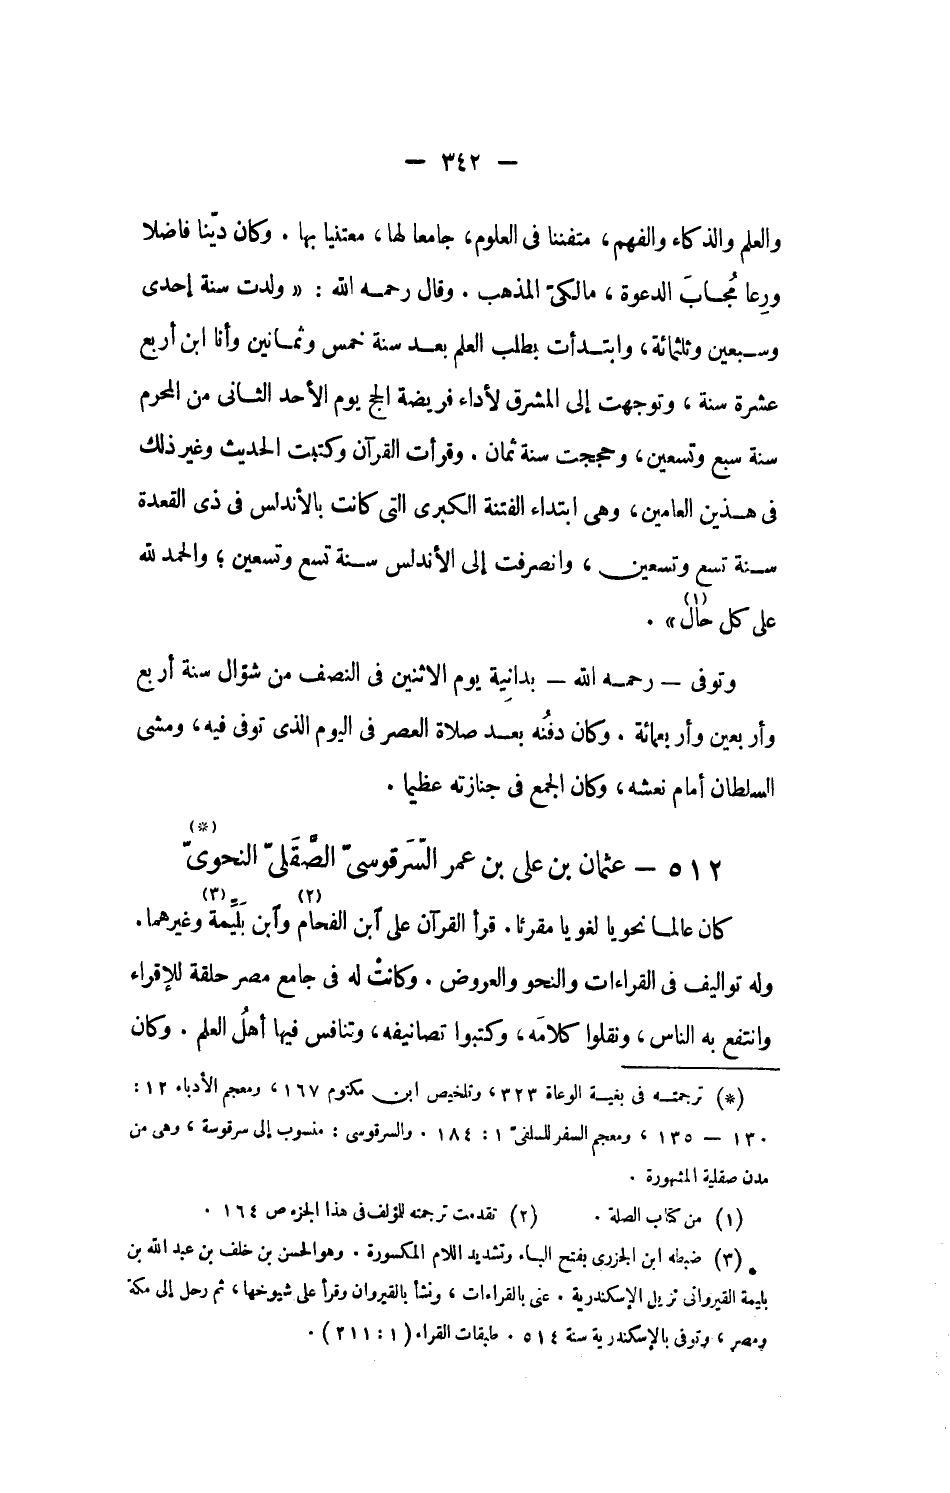 — ٣٤٢ —
والعلم والذكاء والفهم، متفننا فى العلوم، جامعا لها، معتنيا بها . وكان ديّنا فاضلا
ورِعا مُجابَ الدعوة ، مالكىّ المذهب . وقال رحمه الله : « ولدت سنة إحدى
وسبعين وثلثمائة، وابتدأت بطلب العلم بعد سنة خمس وثمانين وأنا ابن أربع
عشرة سنة ، وتوجهت إلى المشرق لأداء فريضة الحج يوم الأحد الثانى من المحرم
سنة سبع وتسعين، وحججت سنة ثمان . وقرأت القرآن وكتبت الحديث وغير ذلك
فى هذين العامين، وهى ابتداء الفتنة الكبرى التى كانت بالأندلس فى ذى القعدة
سنة تسع وتسعين ، وانصرفت إلى الأندلس سنة تسع وتسعين ؛ والحمد لله
على كل حال(١) » .
وتوفى — رحمه الله — بدانِية يوم الاثنين فى النصف من شوّال سنة أربع
وأربعين وأربعمائة . وكان دفنُه بعد صلاة العصر فى اليوم الذى توفى فيه، ومشى
السلطان أمام نعشه، وكان الجمع فى جنازته عظيما .
٥١٢ — عثمان بن على بن عمر السَّرَقوسىّ الصَّقَلىّ النحوىّ(*)
كان عالما نحويا لغويا مقرئا. قرأ القرآن على آبن الفحام(٢) وآبن بَلِّيمة(٣) وغيرهما.
وله تواليف فى القراءات والنحو والعروض . وكانتْ له فى جامع مصر حلقة للإقراء
وانتفع به الناس ، ونقلوا كلامَه، وكتبوا تصانيفه، وتنافس فيها أهلُ العلم . وكان
(*) ترجمته فى بغية الوعاة ٣٢٣، وتلخيص ابن مكتوم ١٦٧ ، ومعجم الأدباء ١٢ :
١٣٠ — ١٣٥ ، ومعجم السفر للسلفىّ ١ : ١٨٤ . والسرقوسى : منسوب إلى سرقوسة ، وهى من
مدن صقلية المشهورة .
(١) من كتاب الصلة . (٢) تقدمت ترجمته للؤلف فى هذا الجزء ص ١٦٤ .
(٣) ضبطه ابن الجزرى بفتح الباء وتشديد اللام المكسورة . وهو الحسن بن خلف بن عبد الله بن
بليمة القيروانى نزيل الإسكندرية . عنى بالقراءات ، ونشأ بالقيروان وقرأ على شيوخها ، ثم رحل إلى مكة
ومصر ، وتوفى بالإسكندرية سنة ٥١٤ . طبقات القراء ( ١ : ٢١١ ) .